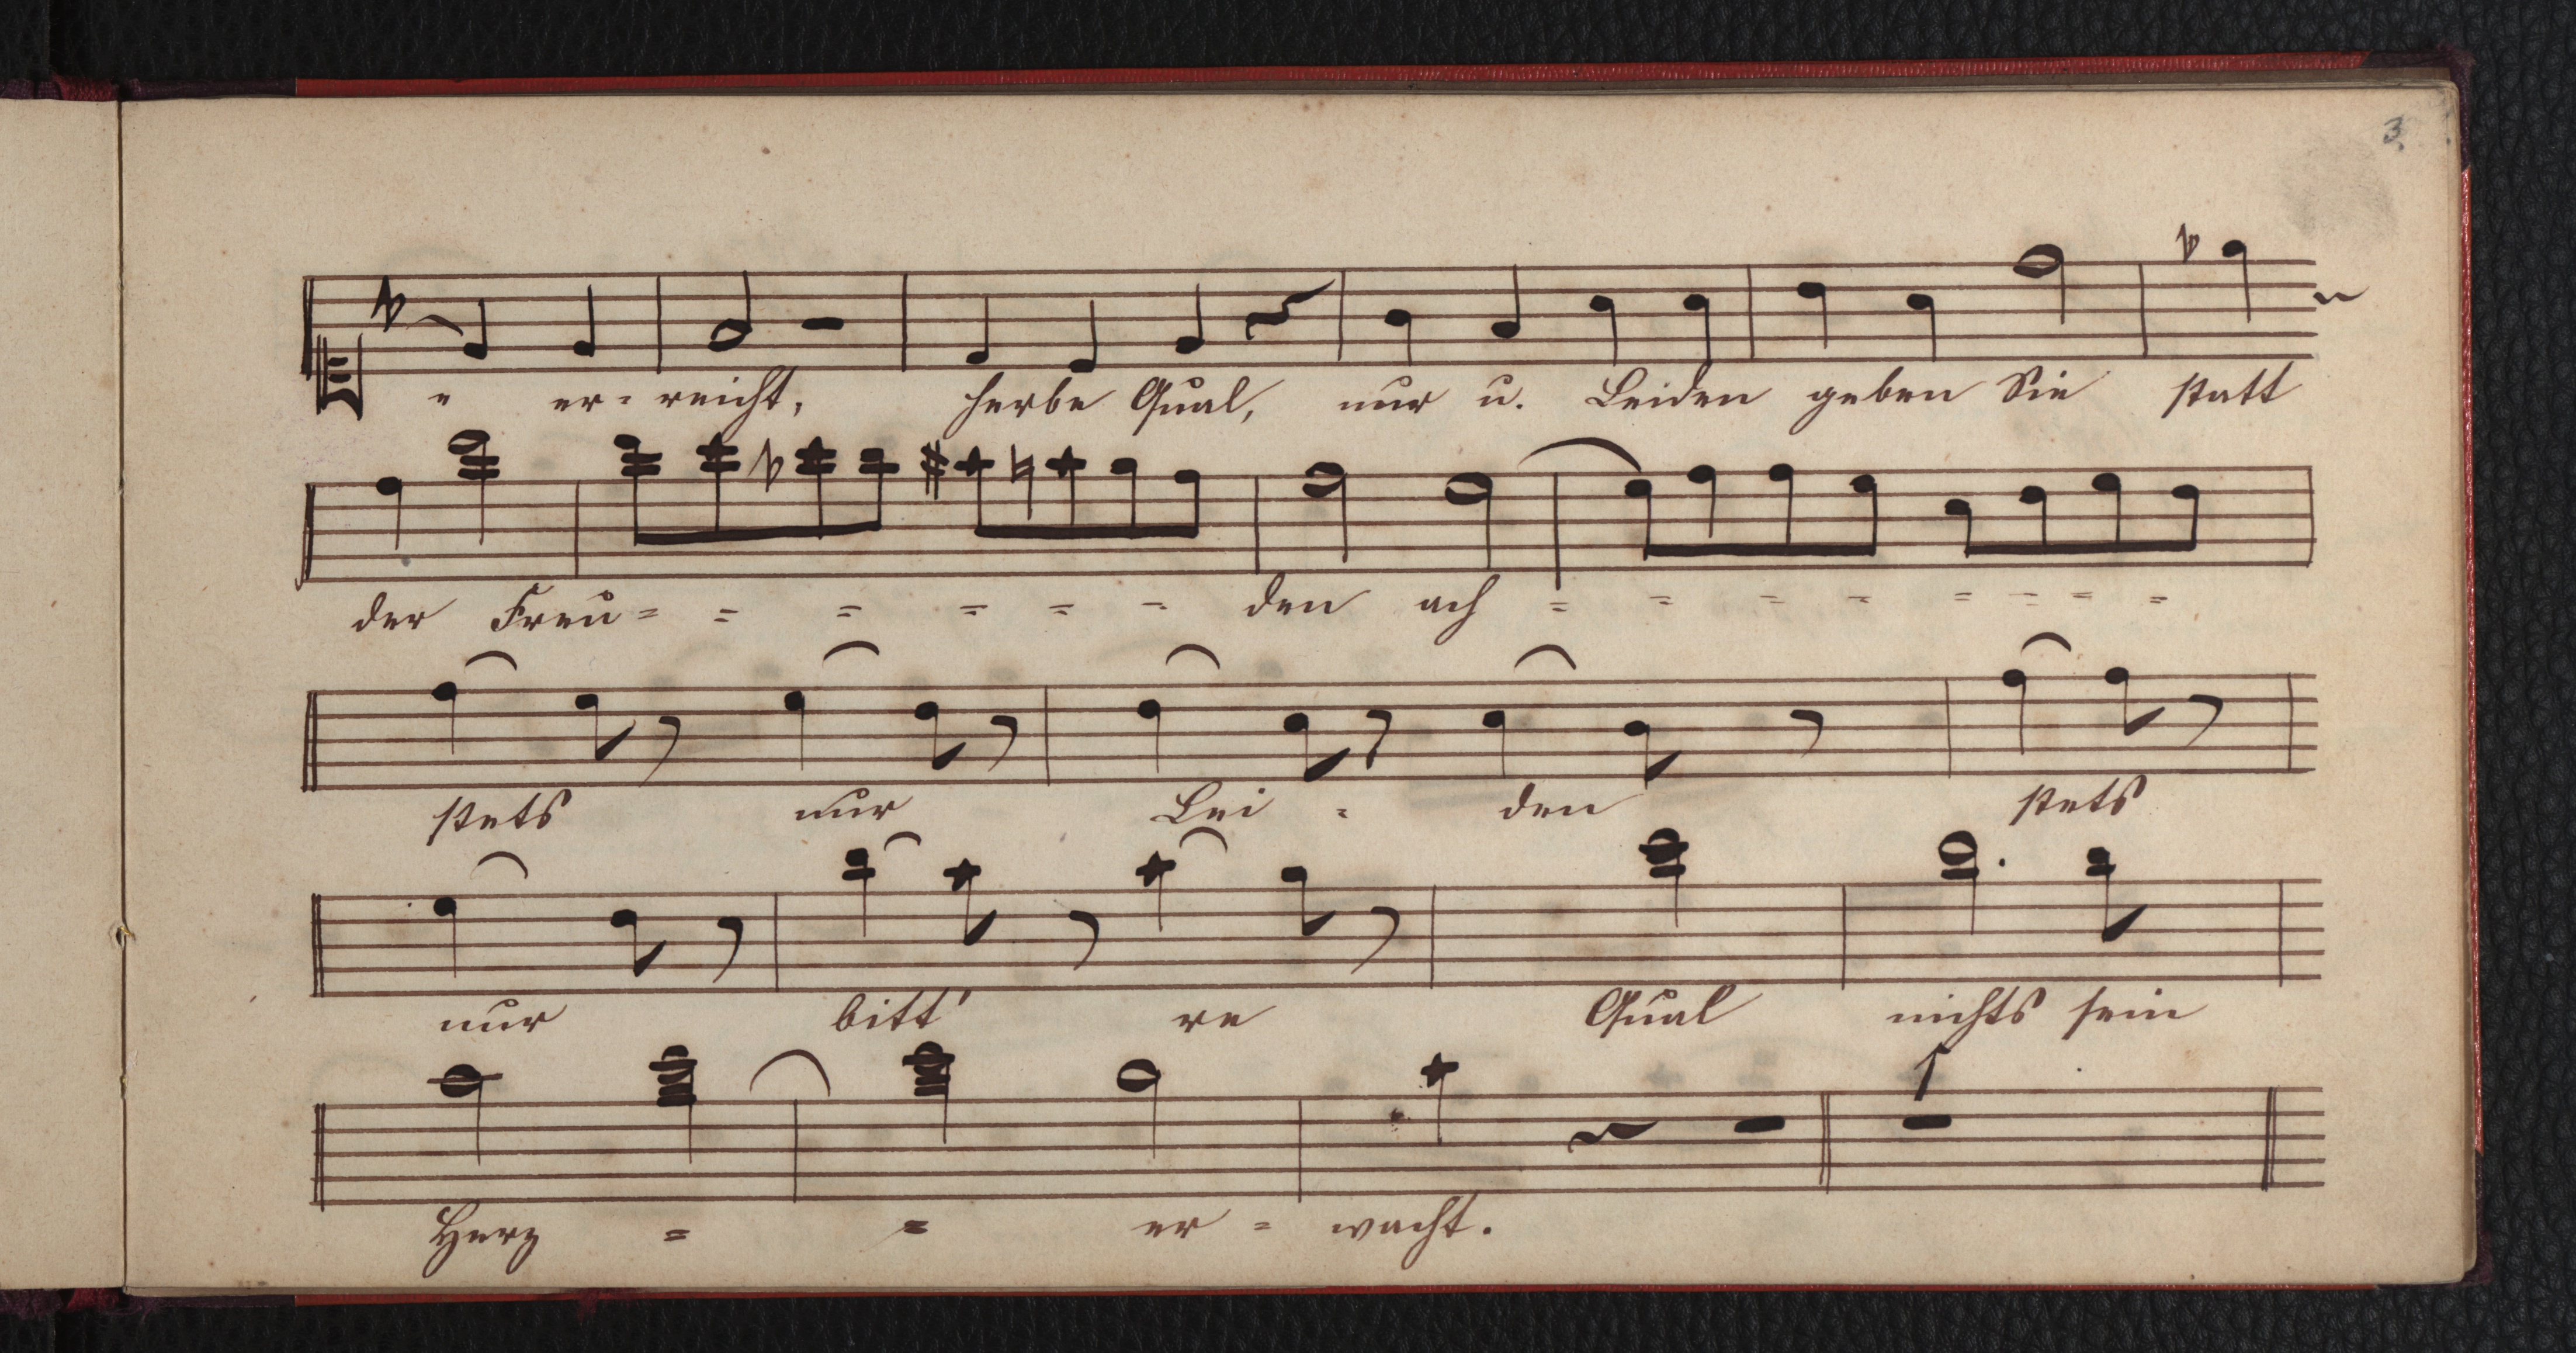 3.
" er- reicht, herbe Qual, nur u. Leiden geben Sie statt
der Freu= = = = = - den ach = = = = = = = =
stets nur Lei - den stets
nur bitt' re Qual nichts sein
Herz = = er = wacht.